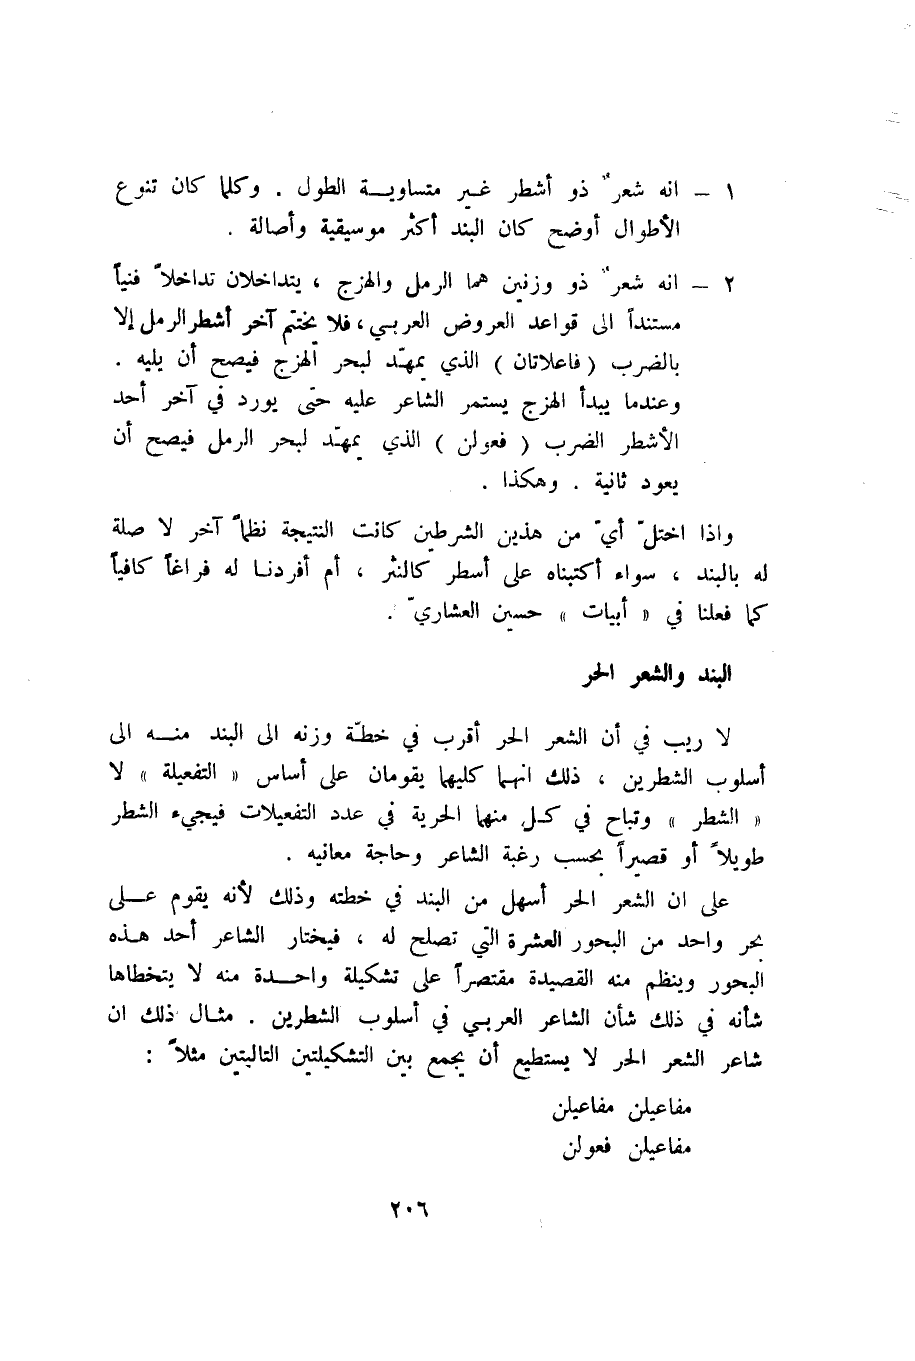 ١ – انه شعرٌ ذو أشطر غير متساوية الطول . وكلما كان تنوع
الأطوال أوضح كان البند أكثر موسيقية وأصالة .
٢ – انه شعرٌ ذو وزنين هما الرمل والهزج ، يتداخلان تداخلاً فنياً
مستنداً الى قواعد العروض العربي ، فلا يختتم آخر أشطر الرمل إلا
بالضرب ( فاعلاتان ) الذي يمهّد لبحر الهزج فيصح أن يليه .
وعندما يبدأ الهزج يستمر الشاعر عليه حتى يورد في آخر أحد
الأشطر الضرب ( فعولن ) الذي يمهّد لبحر الرمل فيصح أن
يعود ثانية . وهكذا .
واذا اختلّ أيّ من هذين الشرطين كانت النتيجة نظماً آخر لا صلة
له بالبند ، سواء أكتبناه على أسطر كالنثر ، أم أفردنا له فراغاً كافياً
كما فعلنا في « أبيات » حسين العشاريّ .
البند والشعر الحر
لا ريب في أن الشعر الحر أقرب في خطّة وزنه الى البند منه الى
أسلوب الشطرين ، ذلك انهما كليهما يقومان على أساس « التفعيلة » لا
« الشطر » وتباح في كل منهما الحرية في عدد التفعيلات فيجيء الشطر
طويلاً أو قصيراً بحسب رغبة الشاعر وحاجة معانيه .
على ان الشعر الحر أسهل من البند في خطته وذلك لأنه يقوم على
بحر واحد من البحور العشرة التي تصلح له ، فيختار الشاعر أحد هذه
البحور وينظم منه القصيدة مقتصراً على تشكيلة واحدة منه لا يتخطاها
شأنه في ذلك شأن الشاعر العربي في أسلوب الشطرين . مثال ذلك ان
شاعر الشعر الحر لا يستطيع أن يجمع بين التشكيلتين التاليتين مثلاً :
مفاعيلن مفاعيلن
مفاعيلن فعولن
٢٠٦